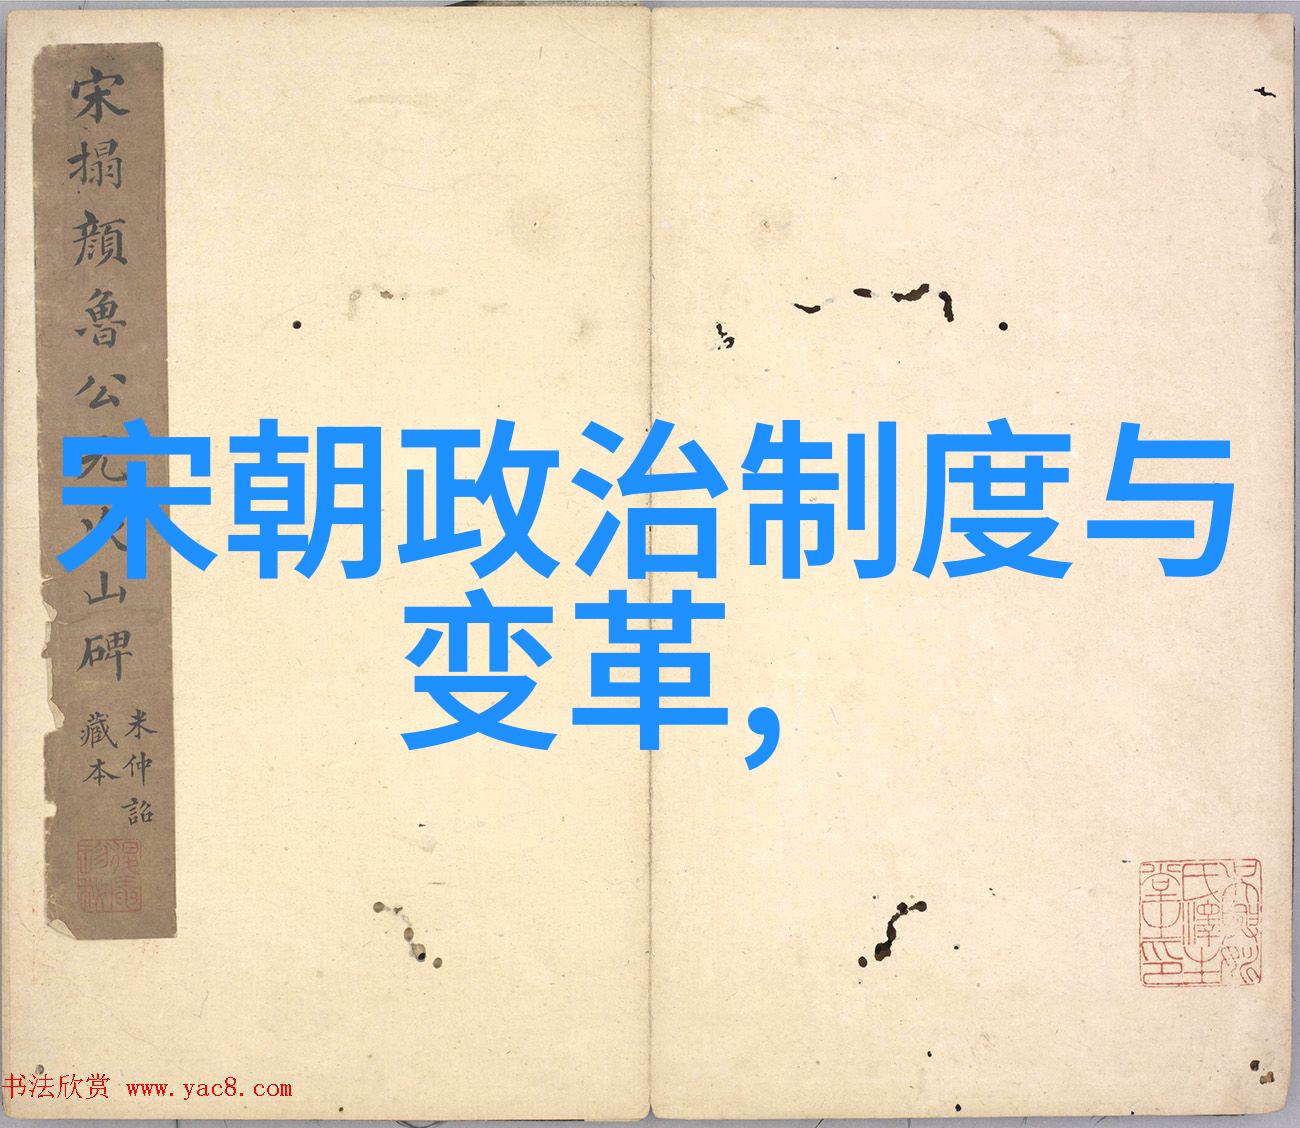 宋搨顏魯公元次山碑
米仲詔
藏本
宋朝政治制度与
变革,
书法欣赏 www.yac8.com